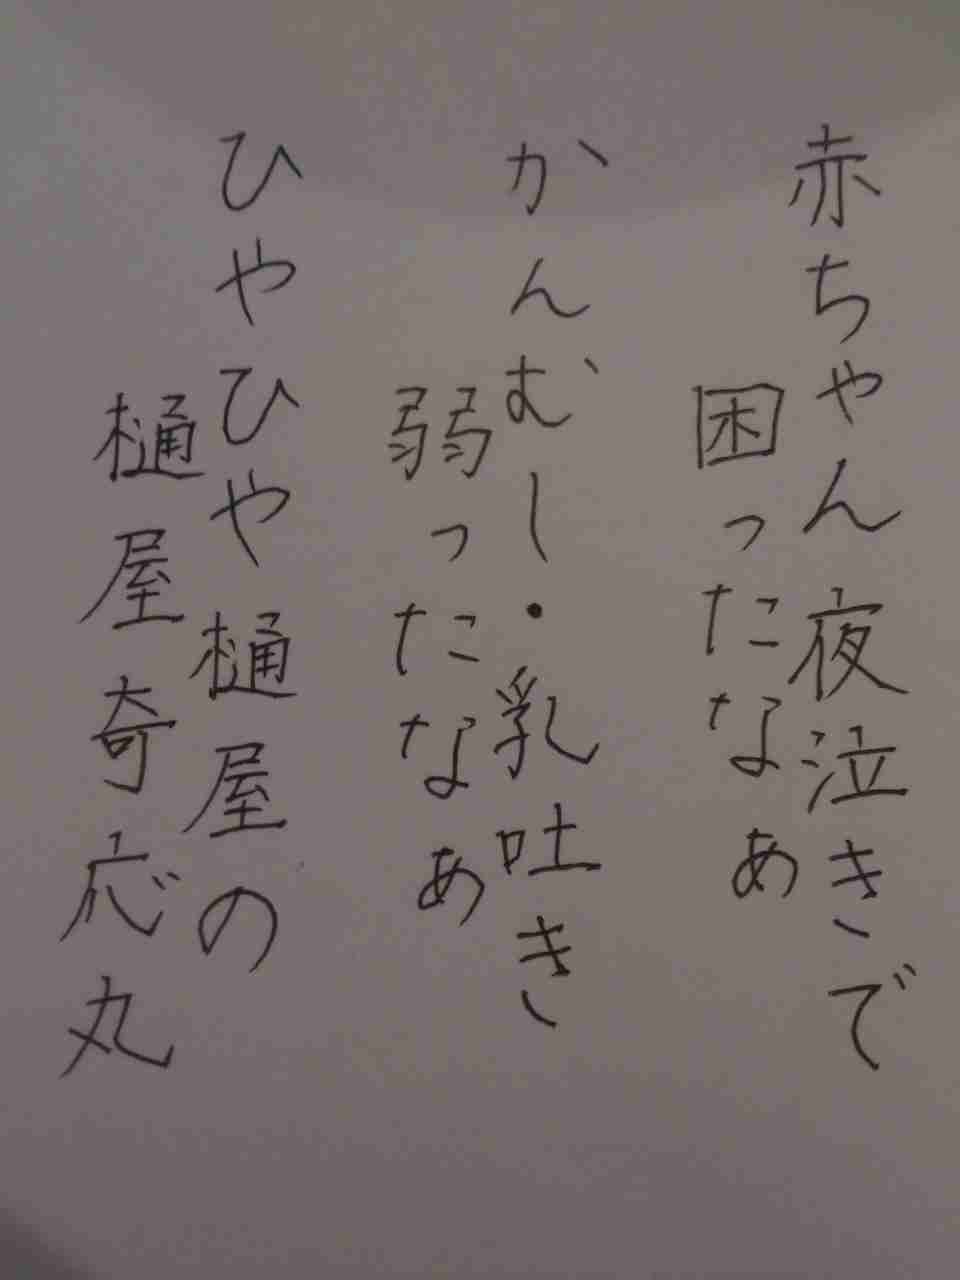 赤ちゃん夜泣きで
困ったなぁ
かんむし・乳吐き
弱ったなぁ
ひやひや樋屋の
樋屋奇応丸